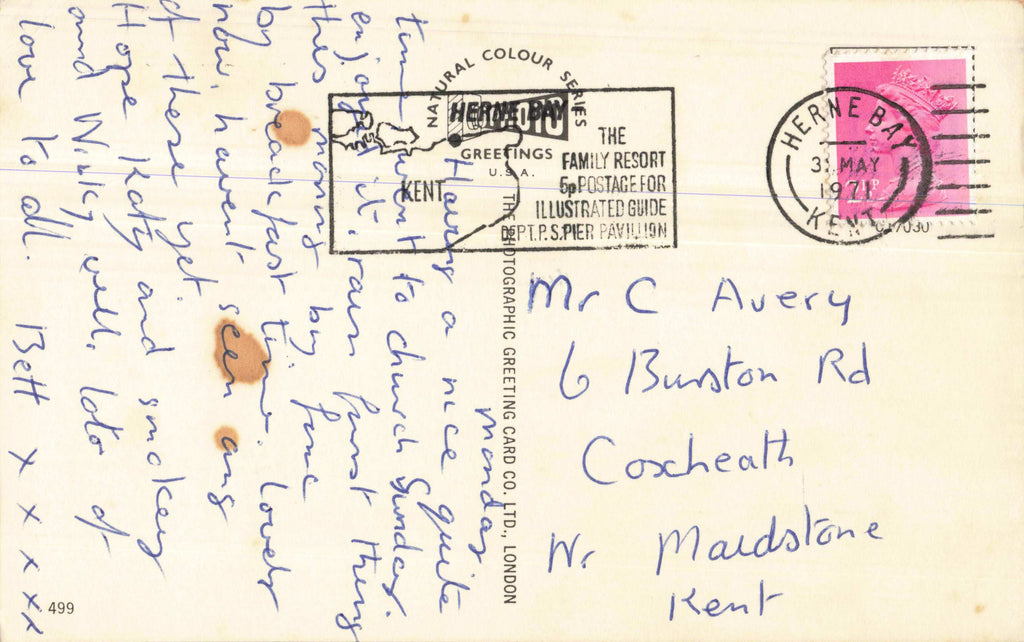 Monday
Having a nice quite
time went to church Sunday.
enjoyed it. rain furst thing
this morning by fine
by breackfast time. Lovely
now, havent seen any
of these yet.
Hope Katy and smokey
and Winky well. lots of
love to all. Bett x x x x x
NATURAL COLOUR SERIES
GREETINGS
U.S.A.
THE PHOTOGRAPHIC GREETING CARD CO. LTD., LONDON
HERNE BAY
KENT
THE
FAMILY RESORT
5p POSTAGE FOR
ILLUSTRATED GUIDE
DEPT. P.S. PIER PAVILLION
HERNE BAY
31 MAY
1971
KENT
Mr C Avery
6 Burston Rd
Coxheath
Nr Maidstone
Kent
499